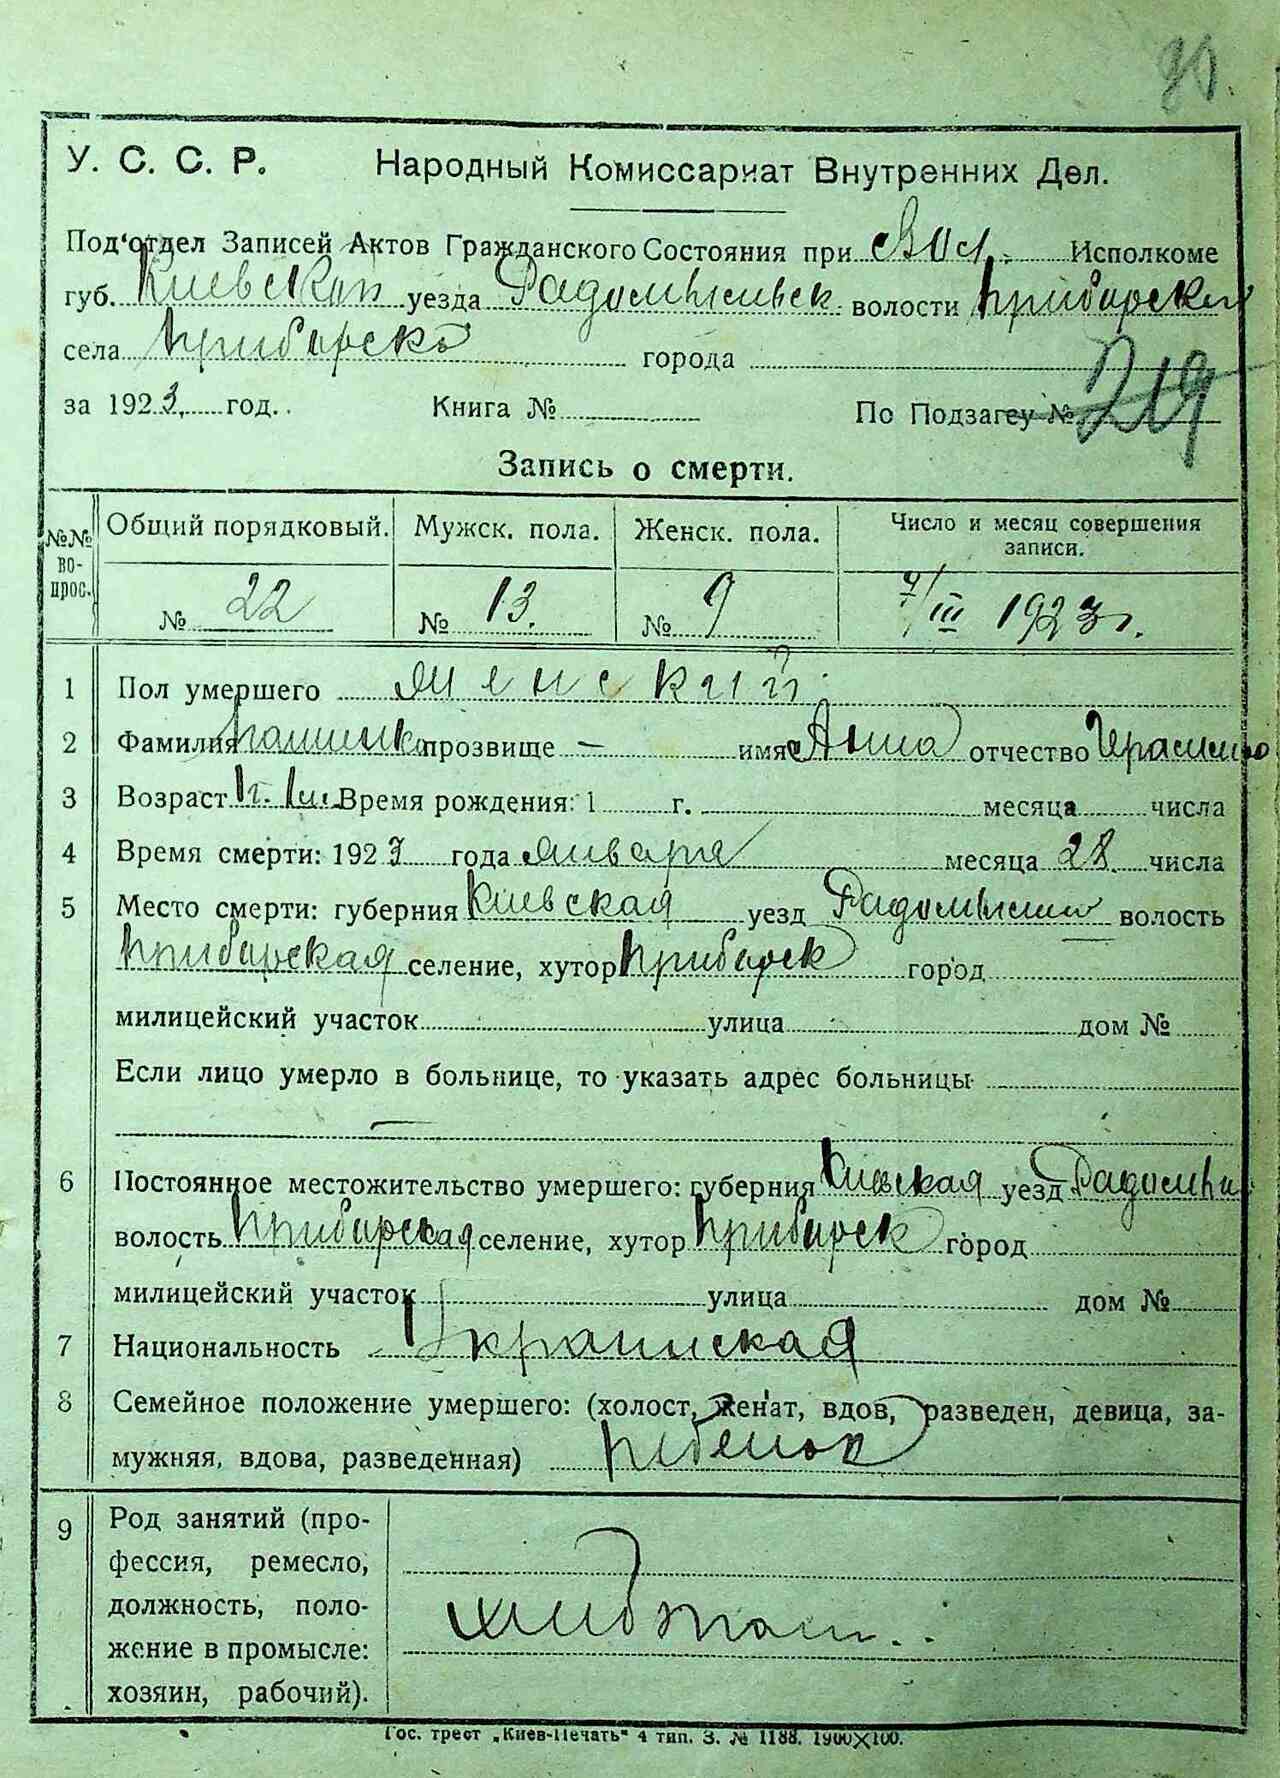 У. С. С. Р. Народный Комиссариат Внутренних Дел.
Под'отдел Записей Актов Гражданского Состояния при Вол. Исполкоме
губ. Киевской уезда Радомысльск. волости Прибирской
села Прибирско города
за 1923 год. Книга № По Подзагсу № 219
Запись о смерти.
№№ вопрос. Общий порядковый. Мужск. пола. Женск. пола. Число и месяц совершения записи.
№ 22 № 13. № 9 7/III 1923 г.
1 Пол умершего Женский
2 Фамилия прозвище — имя Анна отчество
3 Возраст Время рождения: 1 г. месяца числа
4 Время смерти: 1923 года января месяца 28. числа
5 Место смерти: губерния Киевская уезд волость
Прибирская селение, хутор Прибирск город
милицейский участок улица дом №
Если лицо умерло в больнице, то указать адрес больницы
6 Постоянное местожительство умершего: губерния Киевская уезд
волость Прибирская селение, хутор Прибирск город
милицейский участок улица дом №
7 Национальность Украинская
8 Семейное положение умершего: (холост, женат, вдов, разведен, девица, за-
мужняя, вдова, разведенная) ребенок
9 Род занятий (про-
фессия, ремесло,
должность, поло-
жение в промысле:
хозяин, рабочий).
Гос. трест „Киев-Печать" 4 тип. З. № 1188. 1900×100.